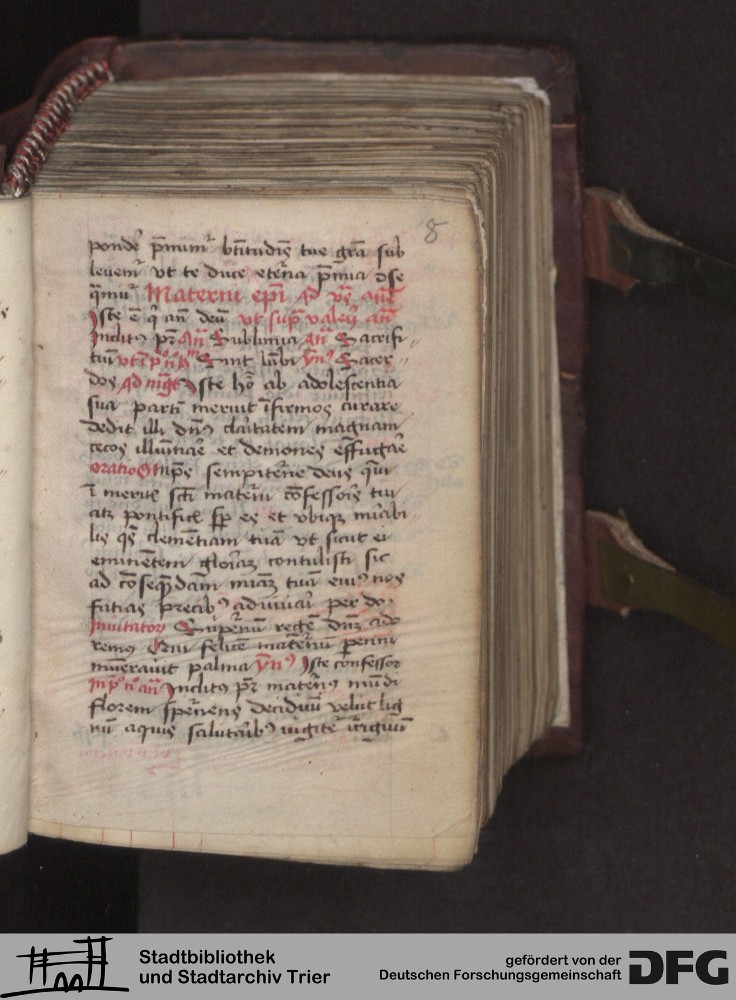 8
ponde p̄mium btitudīs tue grā sub
leuem̄ vt te duce eterna p̄mia
Materni epi Ad
Iste ē q̇ an̄ deū vt sup̄ valerij an̄
Inclitꝰ pr̄ An̄ Sublimia An̄ Sacrifi
Sunt lūbi ym̄ꝰ Sacer
dos Ad mḡt Iste hō ab adolescentia
sua parti meruit īfirmos curare
dedit illi dn̄s claritatem magnam
cecos illuīare et demones effugare
oratio Om̄ps sempiterne deus qui
ī meritꝭ scti materni cōfessorꝭ tui
atqꝫ pontificꝭ sp̄ es et vbiqꝫ mirabi
lis qs̄ clementiam tuā vt sicut ei
eminentem gloriaꝫ contulisti sic
ad cōseq̄ndam miaꝫ tuā eiꝰ nos
facias precibꝰ adiuuari per do
Inuitatoꝝ Supernū regē dn̄ꝫ ado
remꝰ Qui felicē maternū
palma ym̄ꝰ Iste confessor
In pꝰ nꝰ an̄ Inclitꝰ pr̄ maternꝰ mūdi
florem sp̄nens deciduū velut lig
nū aquis salutaribꝰ
Stadtbibliothek
und Stadtarchiv Trier
gefördert von der
Deutschen Forschungsgemeinschaft
DFG